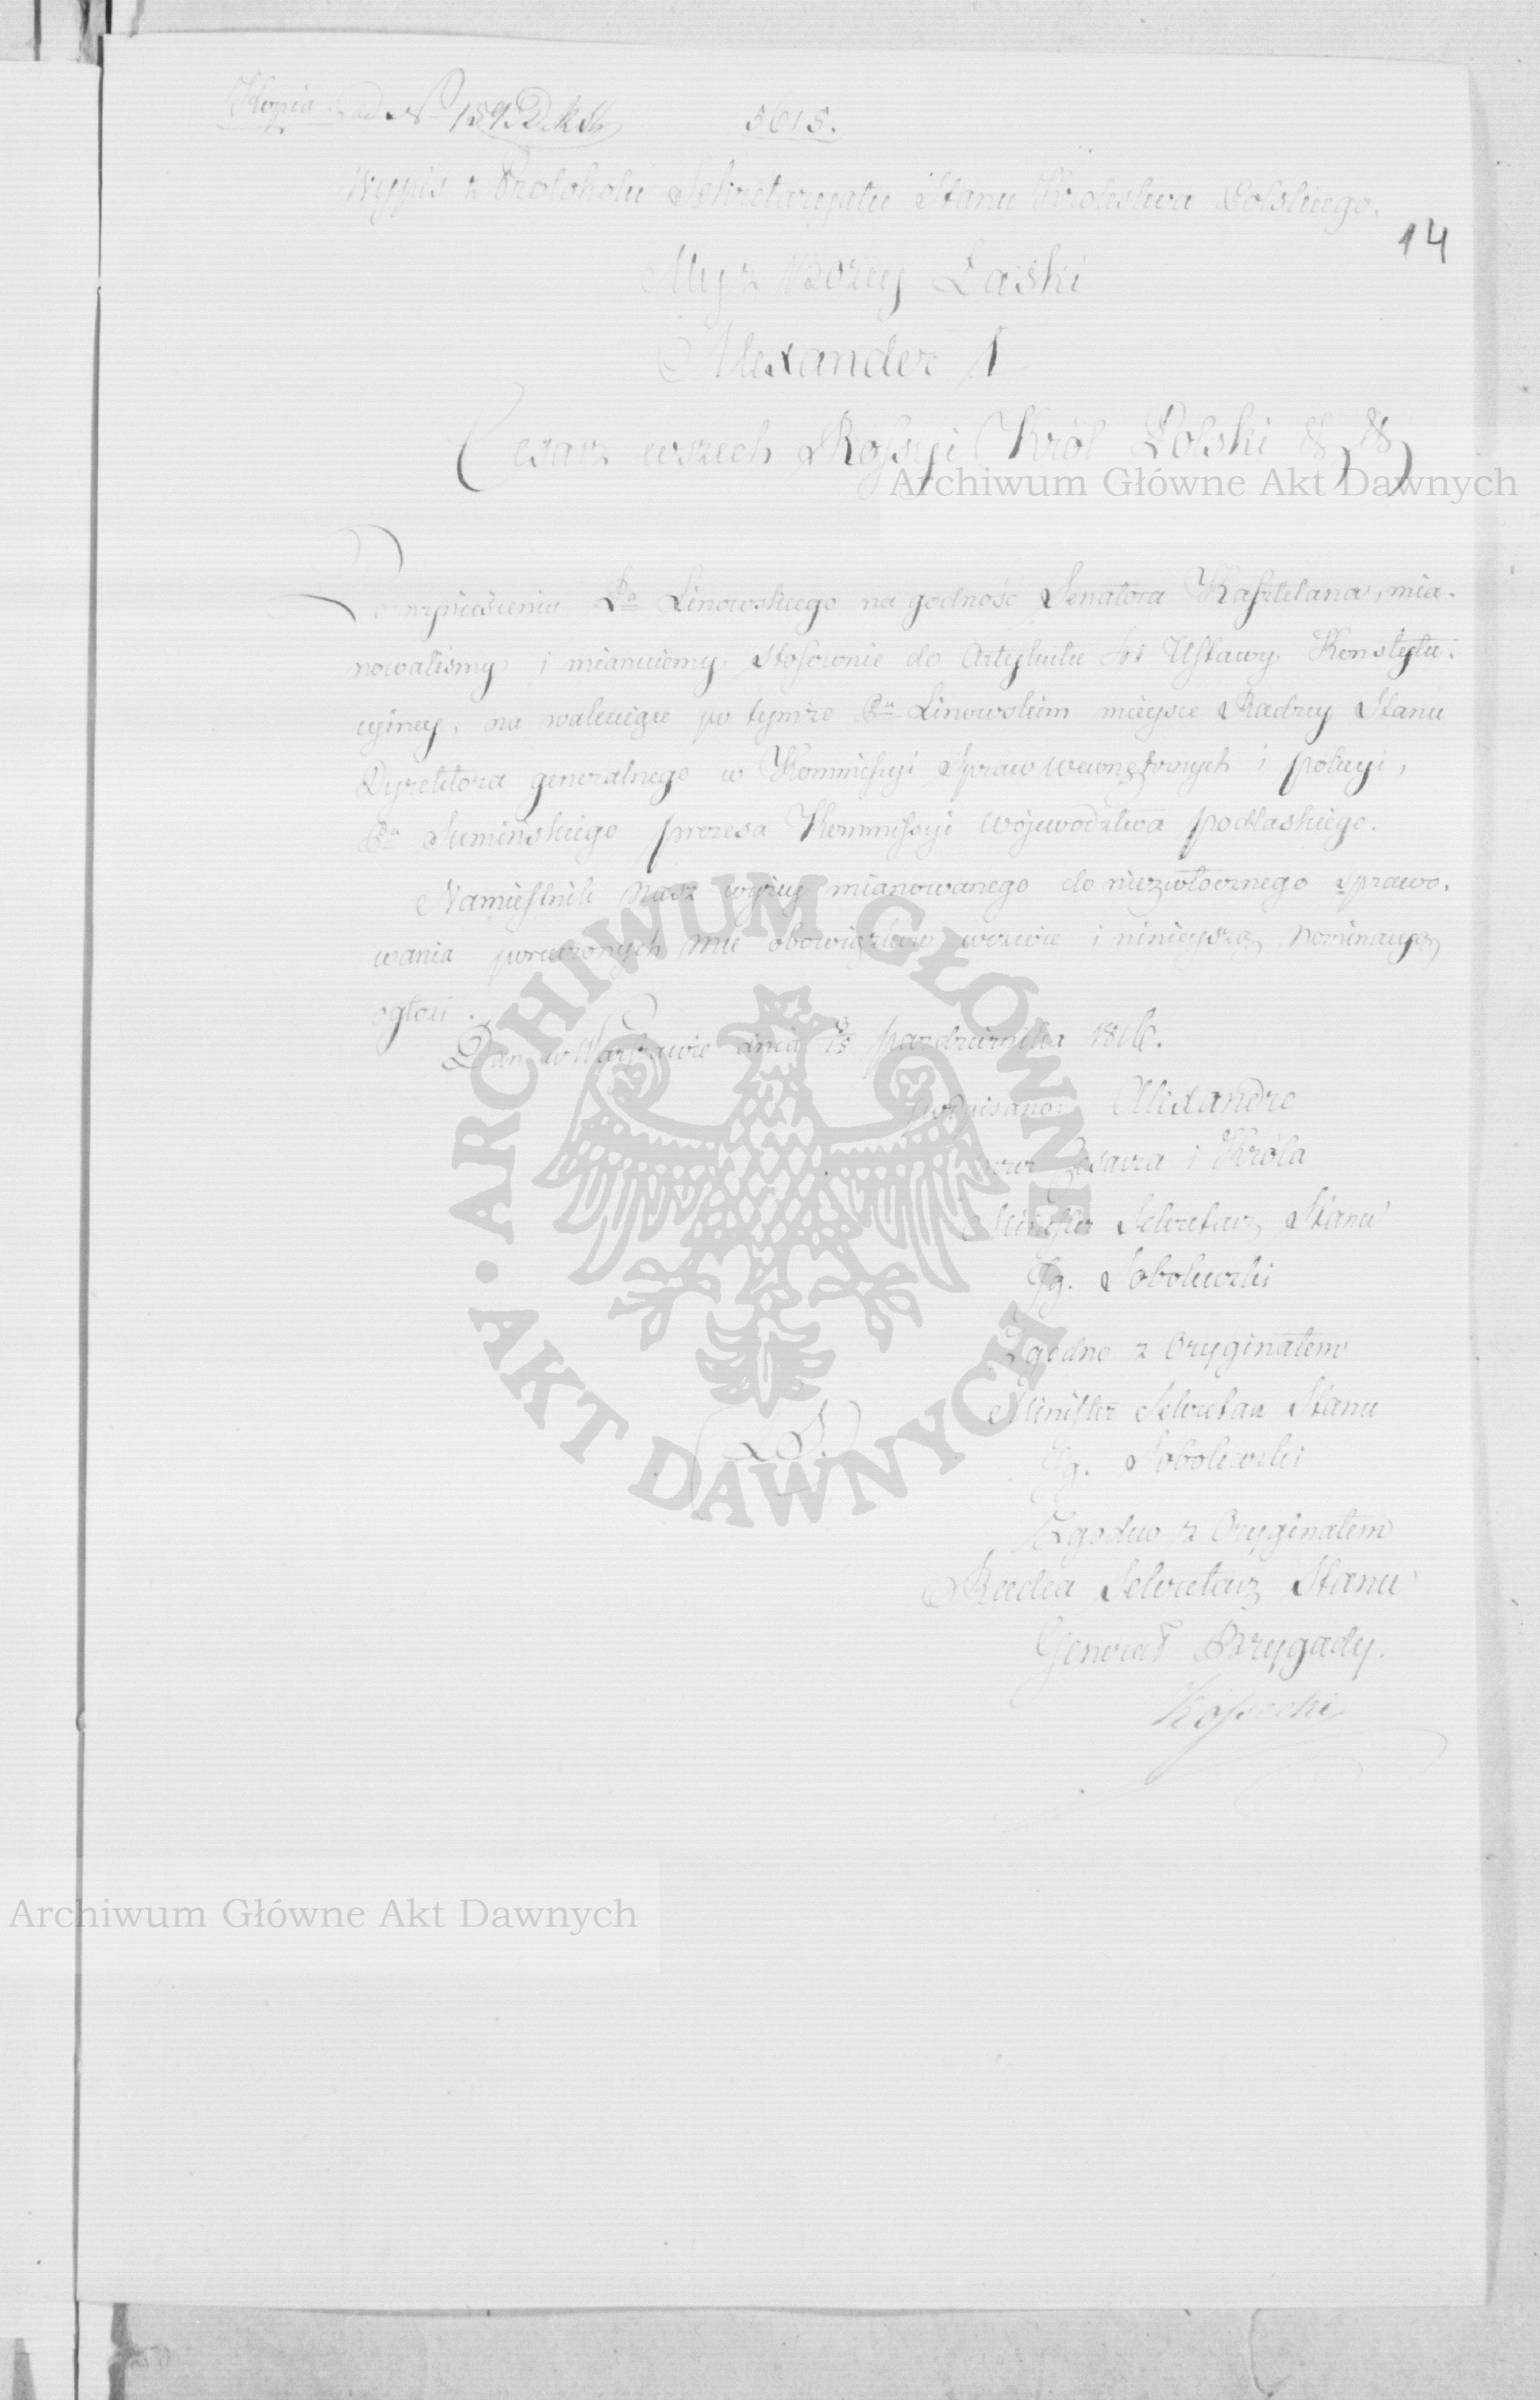 Kopia ad N 1592 5615.
Wypis z Protokołu Sekretaryatu Stanu Krolestwa Polskiego.
14
My z Bożey Łaski
Alexander I
Cesarz wszech Rossyi Król Polski & &
Archiwum Główne Akt Dawnych
Po wyniesieniu Pa Linowskiego na godność Senatora Kasztelana, mia-
nowaliśmy i mianuiemy stosownie do Artykułu Ustawy Konstytu-
cyiney, na wakuiące po tymże Pu Linowskim mieysce Radzcy Stanu
Dyrektora generalnego w Kommissyi Spraw wewnętrznych i policyi,
Pa Sumińskiego prezesa Kommissyi Woiewodztwa podlaskiego.
Namiestnik Nasz wyżey mianowanego do niezwłocznego sprawo-
wania poruczonych mu obowiązków wezwie i ninieyszą nominacyą
ogłosi.
Dan w Warszawie dnia 3/15 pazdziernika 1816.
podpisano: Alexandre
przez Cesarza i Króla
Minister Sekretarz Stanu
Ig. Sobolewski
Zgodno z Oryginałem
Minister Sekretarz Stanu
(L.S.)
Ig. Sobolewski
Zgodno z Oryginałem
Radca Sekretarz Stanu
Generał Brygady.
Kossecki
ARCHIWUM GŁÓWNE AKT DAWNYCH
Archiwum Główne Akt Dawnych